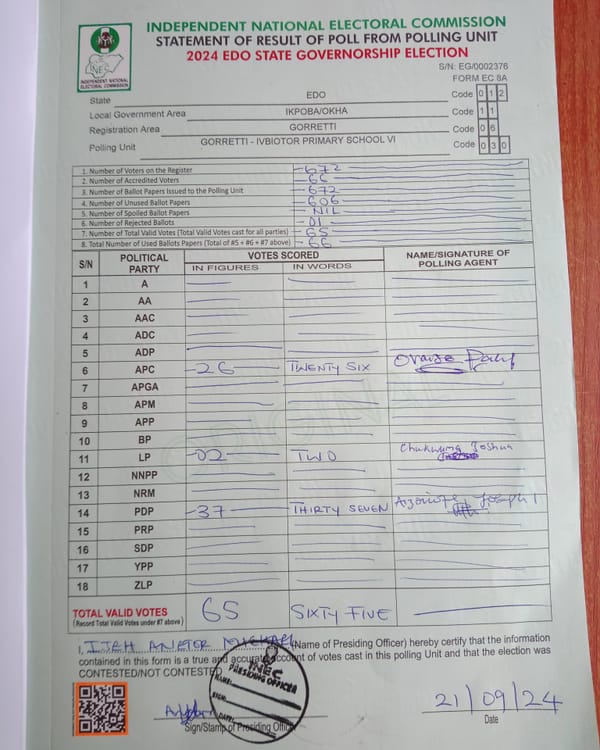 INDEPENDENT NATIONAL ELECTORAL COMMISSION
STATEMENT OF RESULT OF POLL FROM POLLING UNIT
2024 EDO STATE GOVERNORSHIP ELECTION
INEC
INDEPENDENT NATIONAL ELECTORAL COMMISSION
S/N: EG/0002376
FORM EC 8A
State EDO Code 0 1 2
Local Government Area IKPOBA/OKHA Code 1 1
Registration Area GORRETTI Code 0 6
Polling Unit GORRETTI - IVBIOTOR PRIMARY SCHOOL VI Code 0 3 0
1. Number of Voters on the Register 672
2. Number of Accredited Voters 66
3. Number of Ballot Papers Issued to the Polling Unit 672
4. Number of Unused Ballot Papers 606
5. Number of Spoiled Ballot Papers NIL
6. Number of Rejected Ballots 01
7. Number of Total Valid Votes (Total Valid Votes cast for all parties) 65
8. Total Number of Used Ballots Papers (Total of #5 + #6 + #7 above) 66
S/N POLITICAL PARTY VOTES SCORED NAME/SIGNATURE OF POLLING AGENT
IN FIGURES IN WORDS
1 A
2 AA
3 AAC
4 ADC
5 ADP
6 APC 26 TWENTY SIX
7 APGA
8 APM
9 APP
10 BP
11 LP 02 TWO Joshua
12 NNPP
13 NRM
14 PDP 37 THIRTY SEVEN Joseph
15 PRP
16 SDP
17 YPP
18 ZLP
TOTAL VALID VOTES 65 SIXTY FIVE
(Record Total Valid Votes under #7 above)
I, (Name of Presiding Officer) hereby certify that the information
contained in this form is a true and accurate account of votes cast in this polling Unit and that the election was
CONTESTED/NOT CONTESTED
INEC
PRESIDING OFFICER
NAME:
SIGN:
DATE:
21/09/24
Sign/Stamp of Presiding Officer Date
ORIGINAL